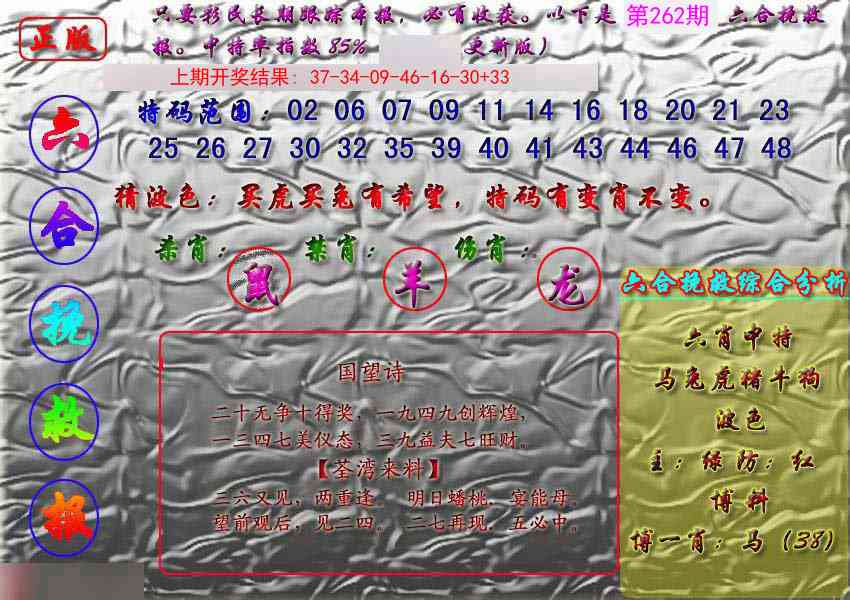 正版
只要彩民长期跟踪本报，必有收获。以下是 第262期 六合挽救
报。中特率指数85% 更新版）
上期开奖结果：37-34-09-46-16-30+33
特码范围：02 06 07 09 11 14 16 18 20 21 23
25 26 27 30 32 35 39 40 41 43 44 46 47 48
猜波色：买虎买兔有希望，特码有变肖不变。
六合挽救报
杀肖：鼠 禁肖：羊 伤肖：龙
国望诗
二十无争十得奖，一九四九创辉煌，
一三四七美仪态，三九益夫七旺财。
【荃湾来料】
三六又见，两重逢。 明日蟠桃，宴能母。
望前观后，见二四。 二七再现，五必中。
六合挽救综合分析
六肖中特
马兔虎猪牛狗
波色
主：绿 防：红
博料
博一肖：马（38）